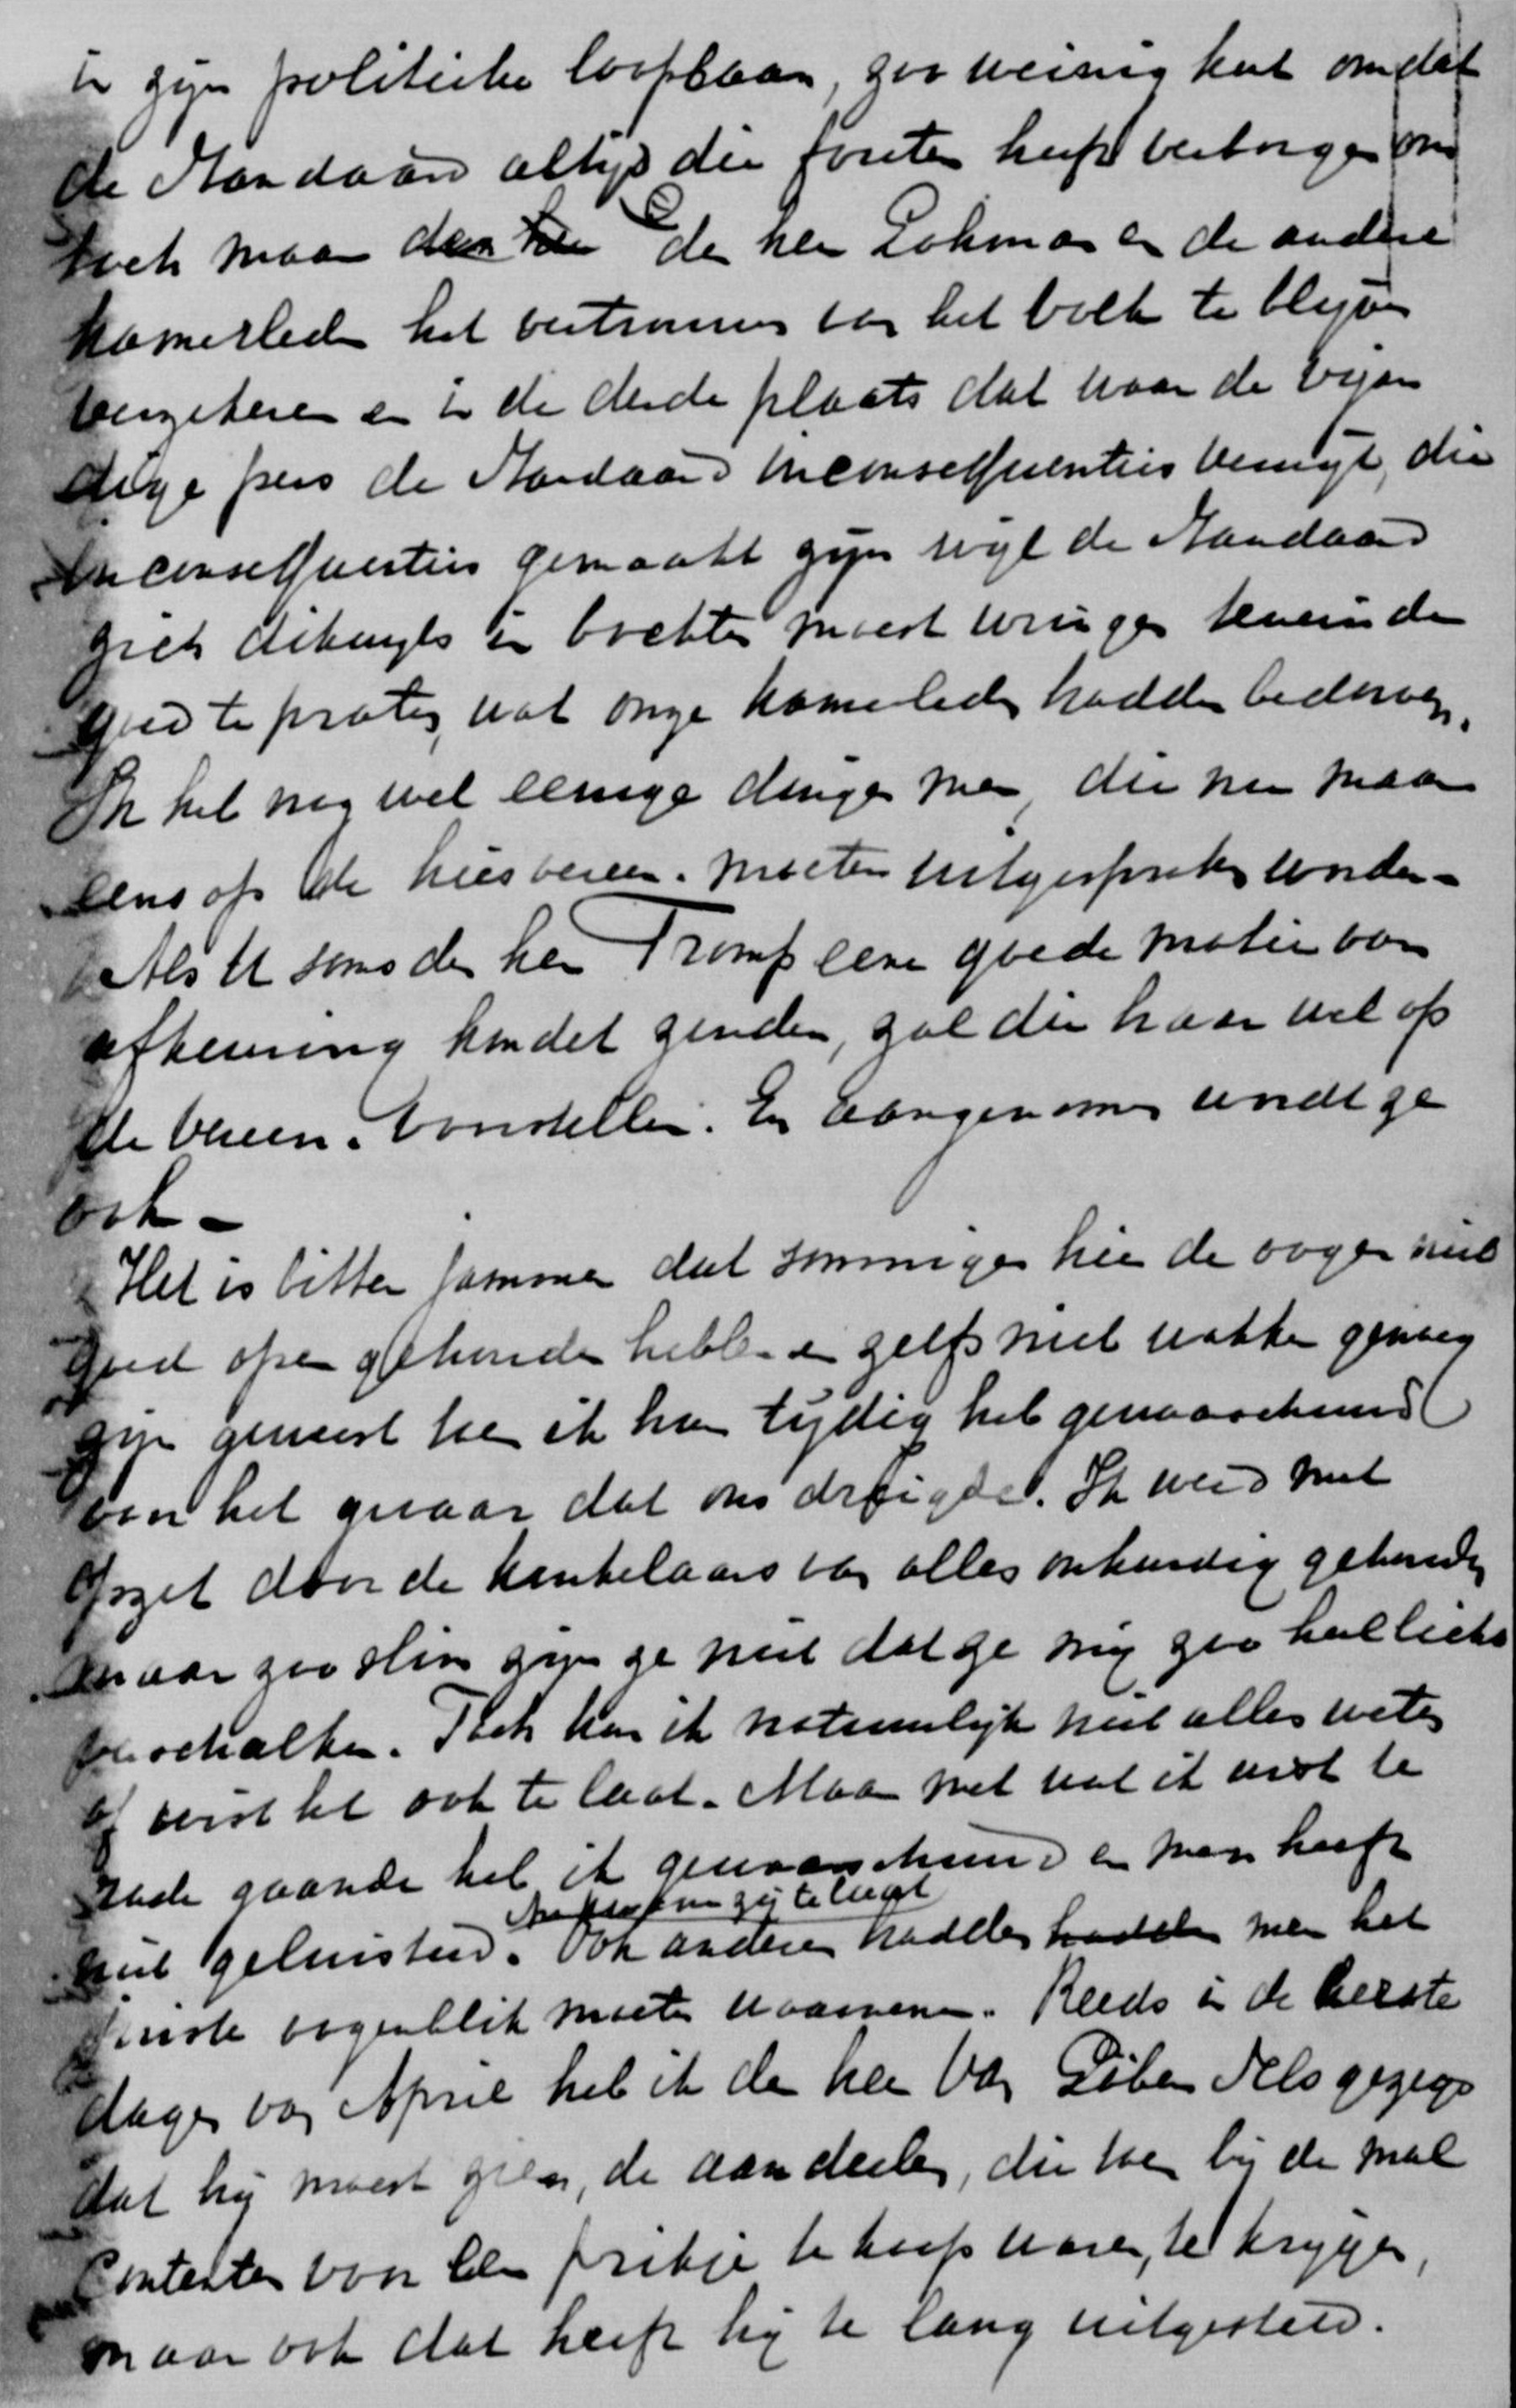 in zijn politieke loopbaan, zoo weinig kent omdat
de Standaard altijd die fouten heeft verborgen om
toch maar den heer Lohman en de andere
kamerleden het vertrouwen van het volk te blijven
verzekeren en in de derde plaats dat waar de vijan
dige pers de Standaard inconsequenties verwijt, die
inconsequenties gemaakt zijn wijl de Standaard
zich dikwijls in bochten moest wringen teneinde
goed te praten, wat onze kamerleden hadden bedorven.
Ik heb nog wel eenige dingen meer, die nu maar
eens op de kiesvereen. moeten uitgesproken worden -
Als U soms den heer Tromp eene goede motie van
afkeuring kondet zenden, zal die haar wel op
de vereen. voorstellen. En aangenomen wordt ze
ook -
Het is bitter jammer dat sommigen hier de oogen niet
goed open gehouden hebben en zelfs niet wakker genoeg
zijn geweest toen ik hen tijdig heb gewaarschuwd
van het gevaar dat ons dreigde. Ik werd met
opzet door de konkelaars van alles onkundig gehouden
maar zoo slim zijn ze niet dat ze mij geheel
verschalken. Toch kon ik natuurlijk niet alles weten
of wist het ook te laat. Maar met wat ik wist te
rade gaande heb ik gewaarschuwd en men heeft
niet geluisterd. Ook anderen hadden hadden men het
juiste oogenblik moeten waarnemen. Reeds in de eerste
dagen van April heb ik den heer van Löben Sels gezegd
dat hij moest zien, de aandeelen, die toen bij de mal
contenten voor een prikje te koop waren, te krijgen,
maar ook dat heeft hij te lang uitgesteld.